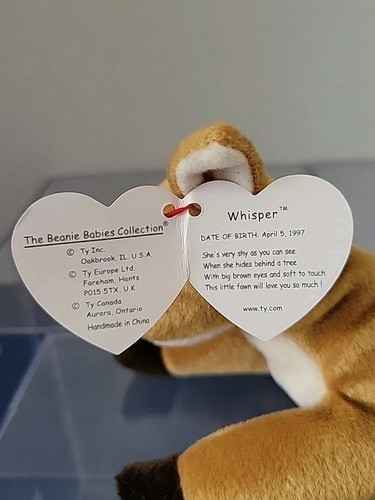 The Beanie Babies Collection®
© Ty Inc.
Oakbrook, IL. U.S.A.
© Ty Europe Ltd.
Fareham, Hants
PO15 5TX, U.K.
© Ty Canada
Aurora, Ontario
Handmade in China
Whisper™
DATE OF BIRTH: April 5, 1997
She's very shy as you can see
When she hides behind a tree
With big brown eyes and soft to touch
This little fawn will love you so much !
www.ty.com